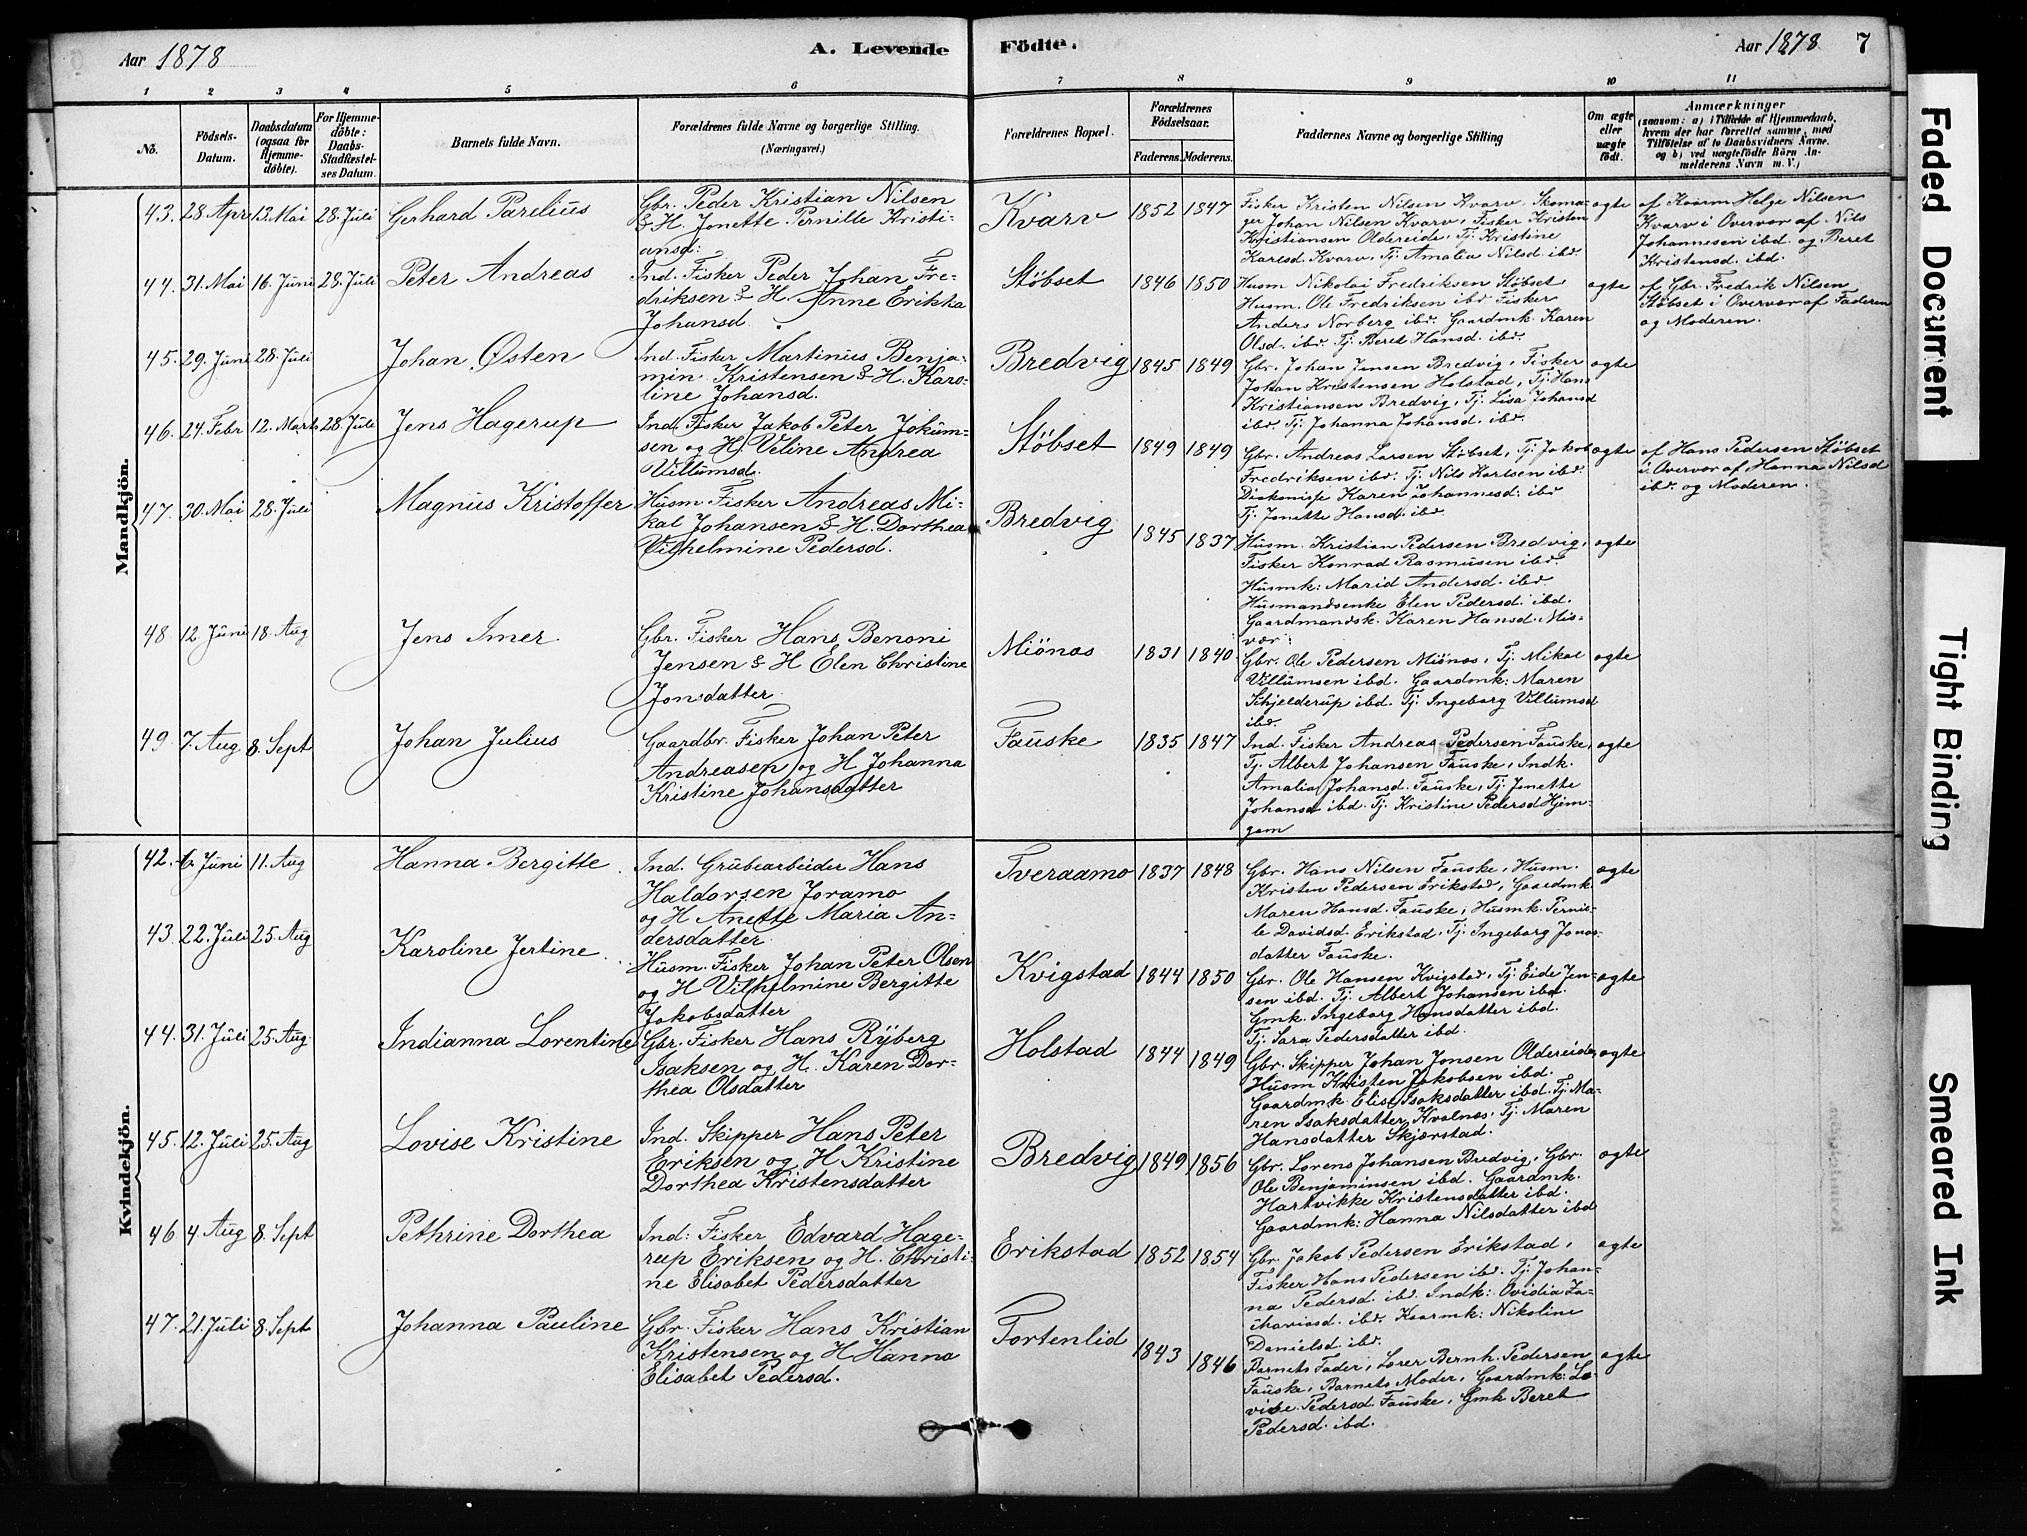 Aar 1878
A. Levende Födte.
Aar 1878 7
1 2 3 4 5 6 7 8 9 10 11
No.
Födsels-
Datum.
Daabsdatum
(ogsaa for
Hjemme-
döbte).
For Hjemme-
döbte:
Daabs-
Stadfæstel-
ses Datum.
Barnets fulde Navn.
Forældrenes fulde Navne og borgerlige Stilling.
(Næringsvei.)
Forældrenes Bopæl.
Forældrenes
Födselsaar.
Faderens. Moderens.
Faddernes Navne og borgerlige Stilling
Om ægte
eller
uægte
födt.
Anmærkninger
(saasom: a) i Tilfælde af Hjemmedaab,
hvem der har forrettet samme, med
Tilföielse af to Daabsvidners Navne.
og b) ved uægtefödte Börn An-
melderens Navn m. V.)
Mandkjön.
43. 28 Apr 13. Mai 28. Juli
Gerhard Parelius
Gbr. Peder Kristian Nilsen
& H. Jonette Pernille Kristi-
ansd:
Kvarv
1852 1847
Fisker Kristen Nilsen Kvarv, Skoma-
ger Johan Nilsen Kvarv, Fisker Kristen
Kristiansen Oldereide, Tj. Kristine
Karlsd. Kvarv. Tj. Amalia Nilsd. ibd.
ægte
af Kaarm. Helge Nilsen
Kvarv i Overvær af Nils
Johannesen ibd. og Beret
Kristensd. ibd.
44. 31. Mai 16. Juni 28. Juli
Peter Andreas
Ind. Fisker Peder Johan Fre-
driksen & H. Anne Erikka
Johansd.
Stöbset
1846 1850
Husm Nikolai Fredriksen Stöbset
Husm. Ole Fredriksen ibd. Fisker
Anders Norberg ibd. Gaardmk. Karen
Olsd. ibd. Tj. Beret Hansd. ibd.
ægte
af Gbr. Fredrik Nilsen
Stöbset i Overvær af Faderen
og Moderen.
45. 29. Juni 28. Juli
Johan Østen
Ind. Fisker Martinus Benja-
min Kristensen & H. Karo-
line Johansd.
Bredvig
1845 1849
Gbr. Johan Jensen Bredvig, Fisker
Johan Kristensen Holstad, Tj. Hans
Kristiansen Bredvig, Tj. Lisa Johansd
ibd. Tj. Johanna Johansd. ibd.
ægte
46. 24. Febr 12. Marts 28. Juli
Jens Hagerup
Ind. Fisker Jakob Peter Jokum-
sen og H. Veline Andrea
Villumsd.
Stöbset
1849 1849
Gbr. Andreas Larsen Stöbset, Tj. Jakob
Fredriksen ibd. Tj. Nils Karlsen ibd.
Diakonisse Karen Johannesd. ibd
Tj. Jonette Hansd. ibd.
ægte
af Hans Pedersen Stöbset
i Overvær af Hanna Nilsd
ibd. og Moderen.
47. 30. Mai 28. Juli
Magnus Kristoffer
Husm. Fisker Andreas Mi-
kal Johansen & H. Dorthea
Vilhelmine Pedersd.
Bredvig
1845 1837
Husm. Kristian Pedersen Bredvig,
Fisker Konrad Rasmusen ibd.
Husmk: Marid Andersd. ibd.
Husmandsenke Elen Pedersd. ibd.
Gaardmandsk. Karen Hansd. Mis-
vær.
ægte
48 12. Juni 18. Aug
Jens Imer
Gbr. Fisker Hans Benoni
Jensen & H Elen Christine
Jonsdatter.
Miönæs
1831 1840
Gbr. Ole Pedersen Miönæs, Tj. Mikal
Villumsen ibd. Gaardmk: Maren
Schjelderup ibd. Tj. Ingeborg Villumsd
ibd.
ægte
49. 7. Aug 8. Sept
Johan Julius
Gaardbr. Fisker Johan Peter
Andreasen og H Johanna
Kristine Johansdatter
Fauske
1835 1847
Ind. Fisker Andreas Pedersen Fauske,
Tj. Albert Johansen Fauske, Indk.
Amalia Johansd. Fauske, Tj. Jonette
Johansd ibd. Tj. Kristine Pedersd Hjem-
gam
ægte
Kvindekjön.
42. 6. Juni 11. Aug
Hanna Bergitte
Ind. Grubearbeider Hans
Haldorsen Joramo
og H Anette Maria An-
dersdatter.
Tveraamo
1837 1848
Gbr. Hans Nilsen Fauske, Husm.
Kristen Pedersen Erikstad, Gaardmk.
Maren Hansd. Fauske, Husmk. Pernil-
le Davidsd. Erikstad, Tj. Ingeborg Jonas-
datter Fauske.
ægte
43. 22. Juli 25. Aug
Karoline Jertine
Husm. Fisker Johan Peter Olsen
og H Vilhelmine Bergitte
Jakobsdatter
Kvigstad
1844 1850
Gbr. Ole Hansen Kvigstad, Tj. Eide Jen-
sen ibd. Tj. Albert Johansen ibd.
Gmk. Ingeborg Hansdatter ibd.
Tj. Sara Pedersdatter ibd.
ægte
44. 31. Juli 25. Aug.
Indianna Lorentine
Gbr. Fisker Hans Ryberg
Isaksen og H. Karen Dor-
thea Olsdatter
Holstad
1844 1849
Gbr. Skipper Johan Jonsen Oldereide,
Husm Kristen Jakobsen ibd.
Gaardmk. Elise Isaksdatter ibd. Tj. Ma-
ren Isaksdatter Kvalnæs, Tj. Maren
Hansdatter Skjærstad.
ægte
45. 12. Juli 25. Aug
Lovise Kristine
Ind. Skipper Hans Peter
Eriksen og H. Kristine
Dorthea Kristensdatter
Bredvig
1849 1856
Gbr. Lorens Johansen Bredvig, Gbr.
Ole Benjaminsen ibd. Gaardmk.
Hartvikke Kristensdatter ibd.
Gaardmk: Hanna Nilsdatter ibd
ægte
46 4. Aug 8. Sept
Pethrine Dorthea
Ind: Fisker Edvard Hage-
rup Eriksen og H. Christi-
ne Elisabet Pedersdatter
Erikstad
1852 1854
Gbr. Jakob Pedersen Erikstad,
Fisker Hans Pedersen ibd. Tj. Johan-
na Pedersd. ibd. Indk: Ovidia Za-
chariasd. ibd. Kaarmk: Nikoline
Danielsd ibd.
ægte
47. 21. Juli 8. Sept
Johanna Pauline
Gbr. Fisker Hans Kristian
Kristensen og H Hanna
Elisabet Pedersd.
Tortenlid
1843 1846
Barnets Fader, Lærer Bernh. Pedersen
Fauske, Barnets Moder, Gaardmk: Lo-
vise Pedersd. Fauske, Gmk Beret
Pedersd. ibd.
ægte
Faded Document
Tight Binding
Smeared Ink